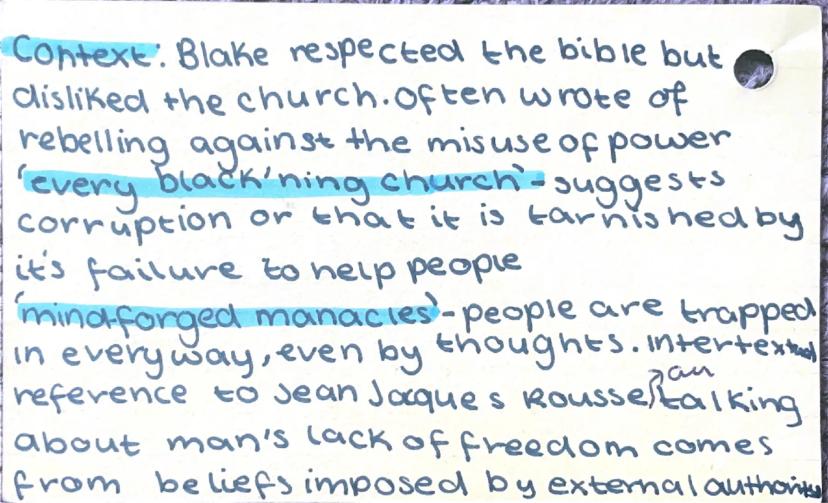 Context: Blake respected the bible but
disliked the church. often wrote of
rebelling against the misuse of power
'every black'ning church' - suggests
corruption or that it is tarnished by
it's failure to help people
'mind-forged manacles' - people are trapped
in every way, even by thoughts. intertextual
reference to Jean Jacques Rousseau talking
about man's lack of freedom comes
from beliefs imposed by external authority